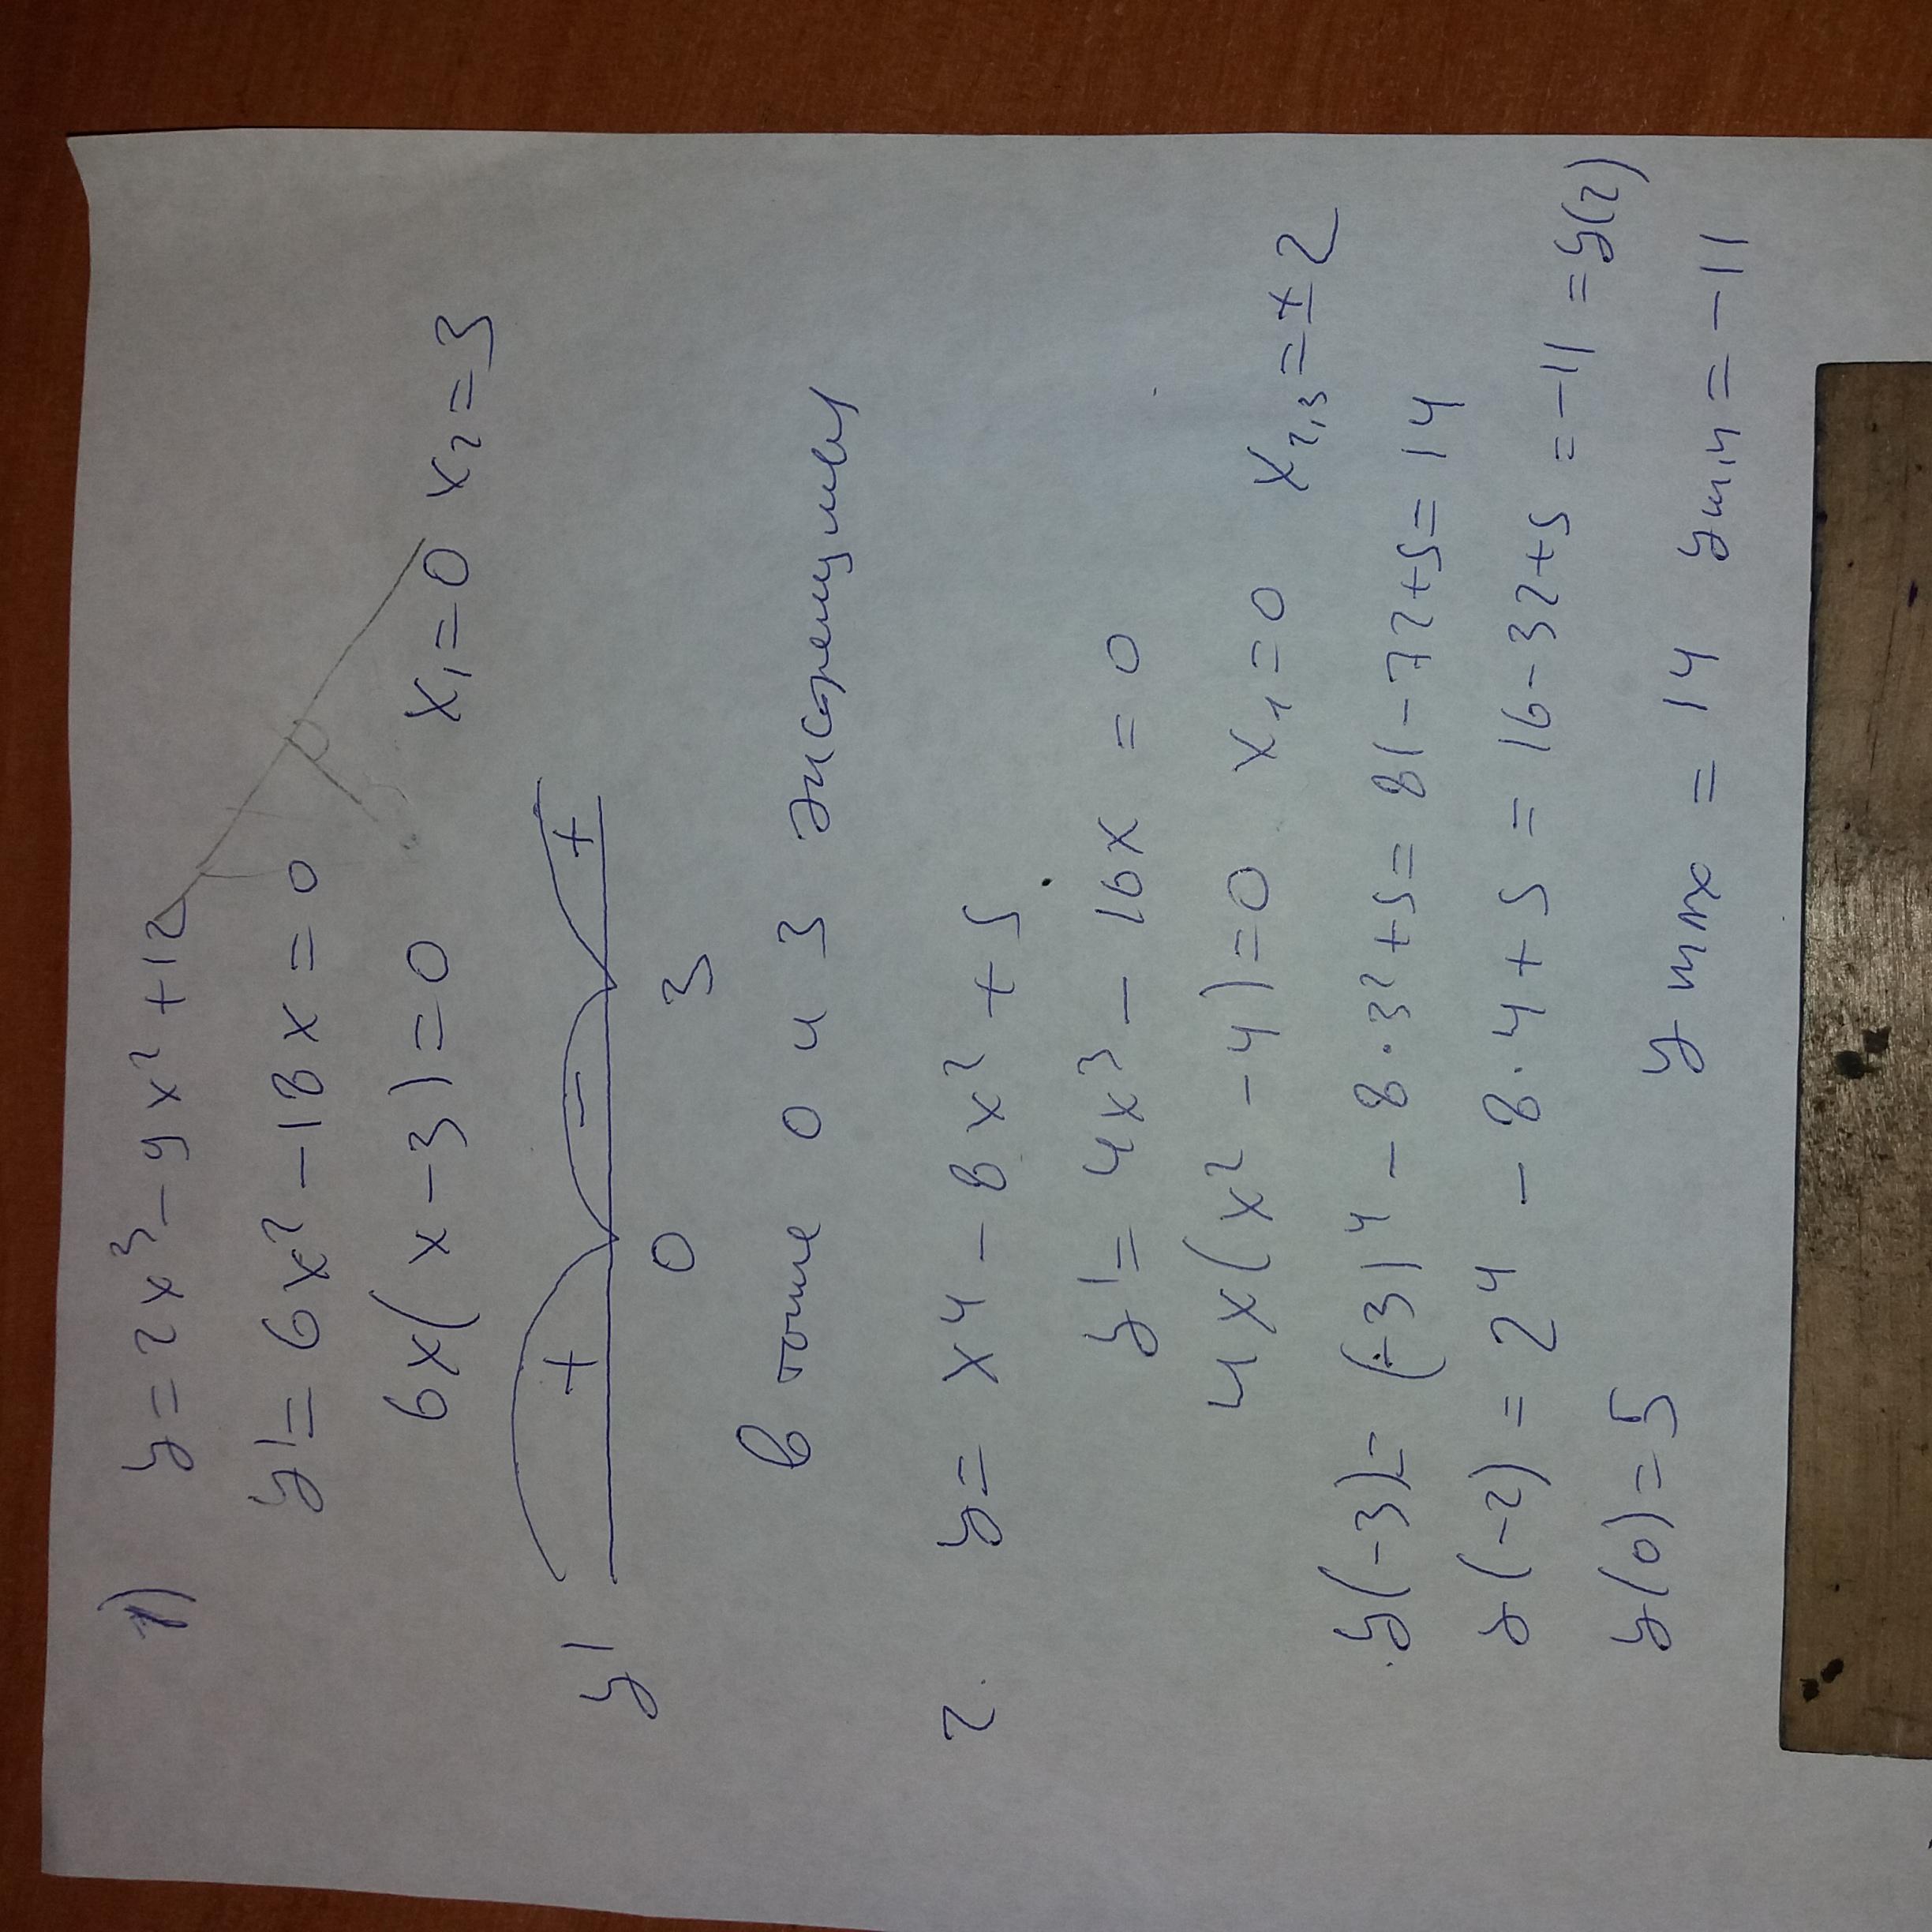 1) y = 2x³ - 9x² + 12
y' = 6x² - 18x = 0
6x(x - 3) = 0 x₁ = 0 x₂ = 3
y' + - +
0 3
в точке 0 и 3 экстремумы
2. y = x⁴ - 8x² + 5
y' = 4x³ - 16x = 0
4x(x² - 4) = 0 x₁ = 0 x₂,₃ = ± 2
y(-3) = (-3)⁴ - 8·3² + 5 = 81 - 72 + 5 = 14
y(-2) = 2⁴ - 8·4 + 5 = 16 - 32 + 5 = -11 = y(2)
y(0) = 5
y max = 14 y min = -11